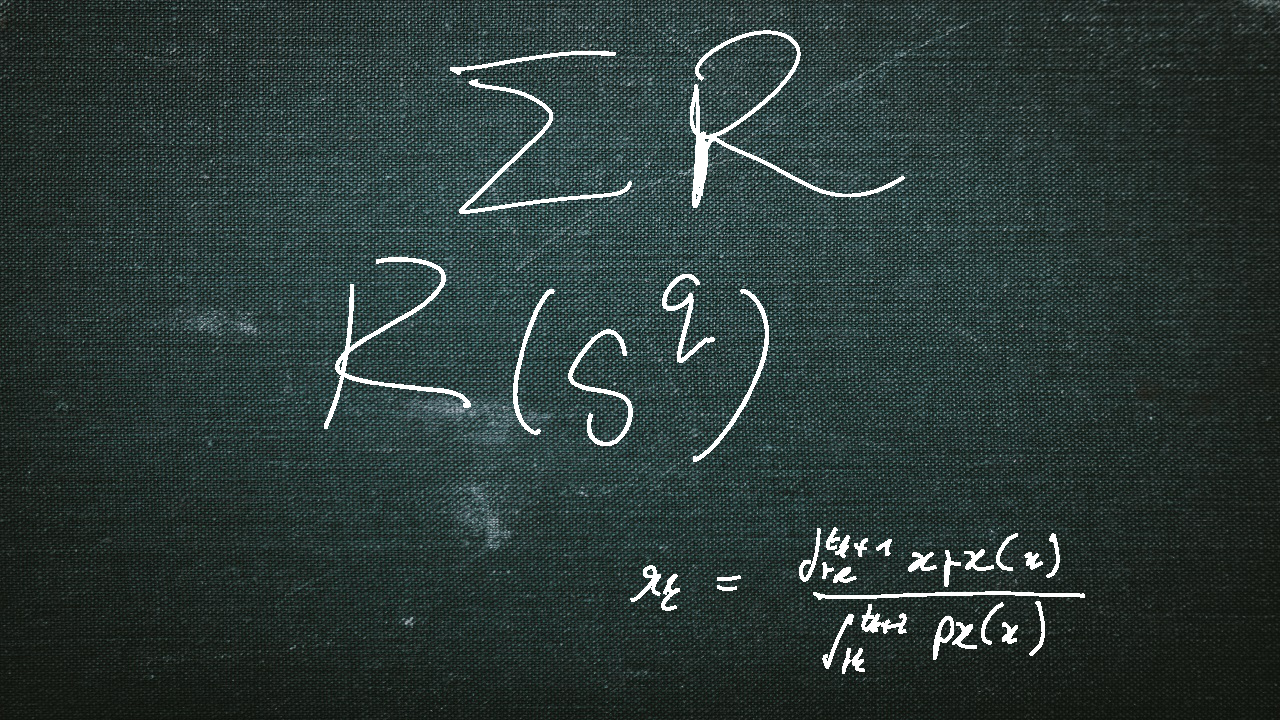 ∑ R
R(S^q)
x_k = \frac{∫_{t_k}^{t_{k+1}} x p_x(x)}{∫_{t_k}^{t_{k+1}} p_x(x)}